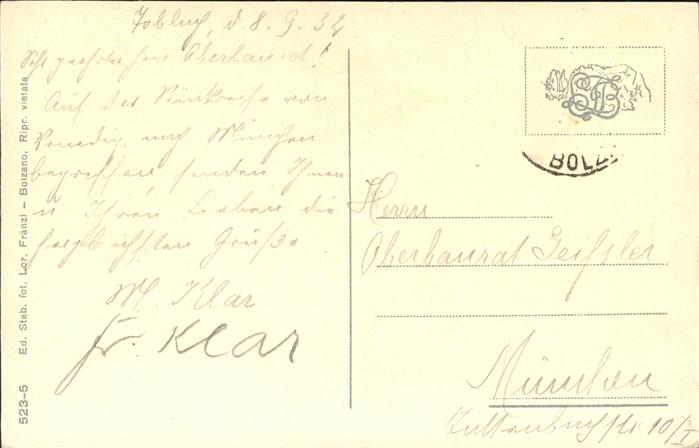 Toblach, d 8. 9. 32
Sehr geehrter Herr Oberbaurat!
Auf der Rückreise von
Venedig nach München
begriffen, senden Ihnen
u Ihren Lieben die
herzlichsten Grüße
M. Klar
Fr. Klar
BOLZ
Herrn
Oberbaurat Geissler
München
10/I
523-5 Ed. Stab. fot. Lor. Fränzl – Bolzano. Ripr. vietata